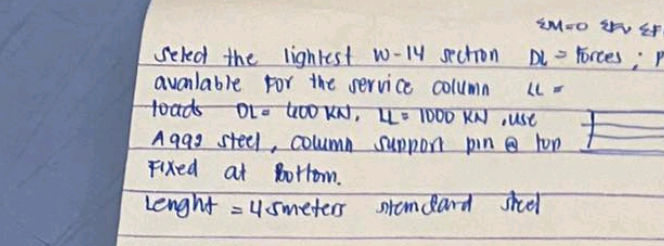 ΣM=0 ΣFV ΣF
select the lightest W-14 section DL = Forces ; P
available for the service column LL =
loads DL= 400 KN, LL= 1000 KN , use
A992 steel, column support pin @ top
Fixed at Bottom.
Lenght = 4.5meters standard steel